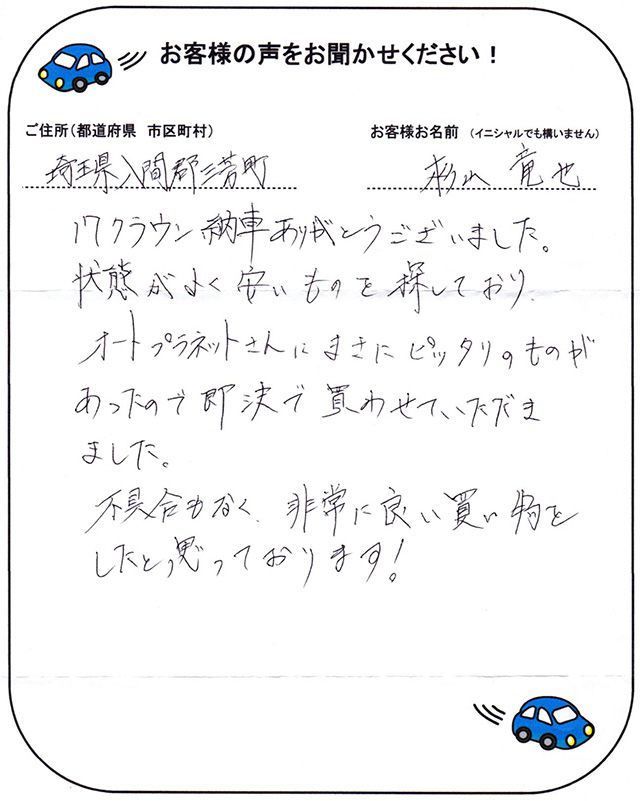 お客様の声をお聞かせください！
ご住所（都道府県 市区町村）
お客様お名前 （イニシャルでも構いません）
埼玉県入間郡三芳町
杉山 竜也
17クラウン納車ありがとうございました。
状態がよく安いものを探しており、
オートプラネットさんにまさにピッタリのものが
あったので即決で買わせていただき
ました。
不具合もなく、非常に良い買い物を
したと思っております！